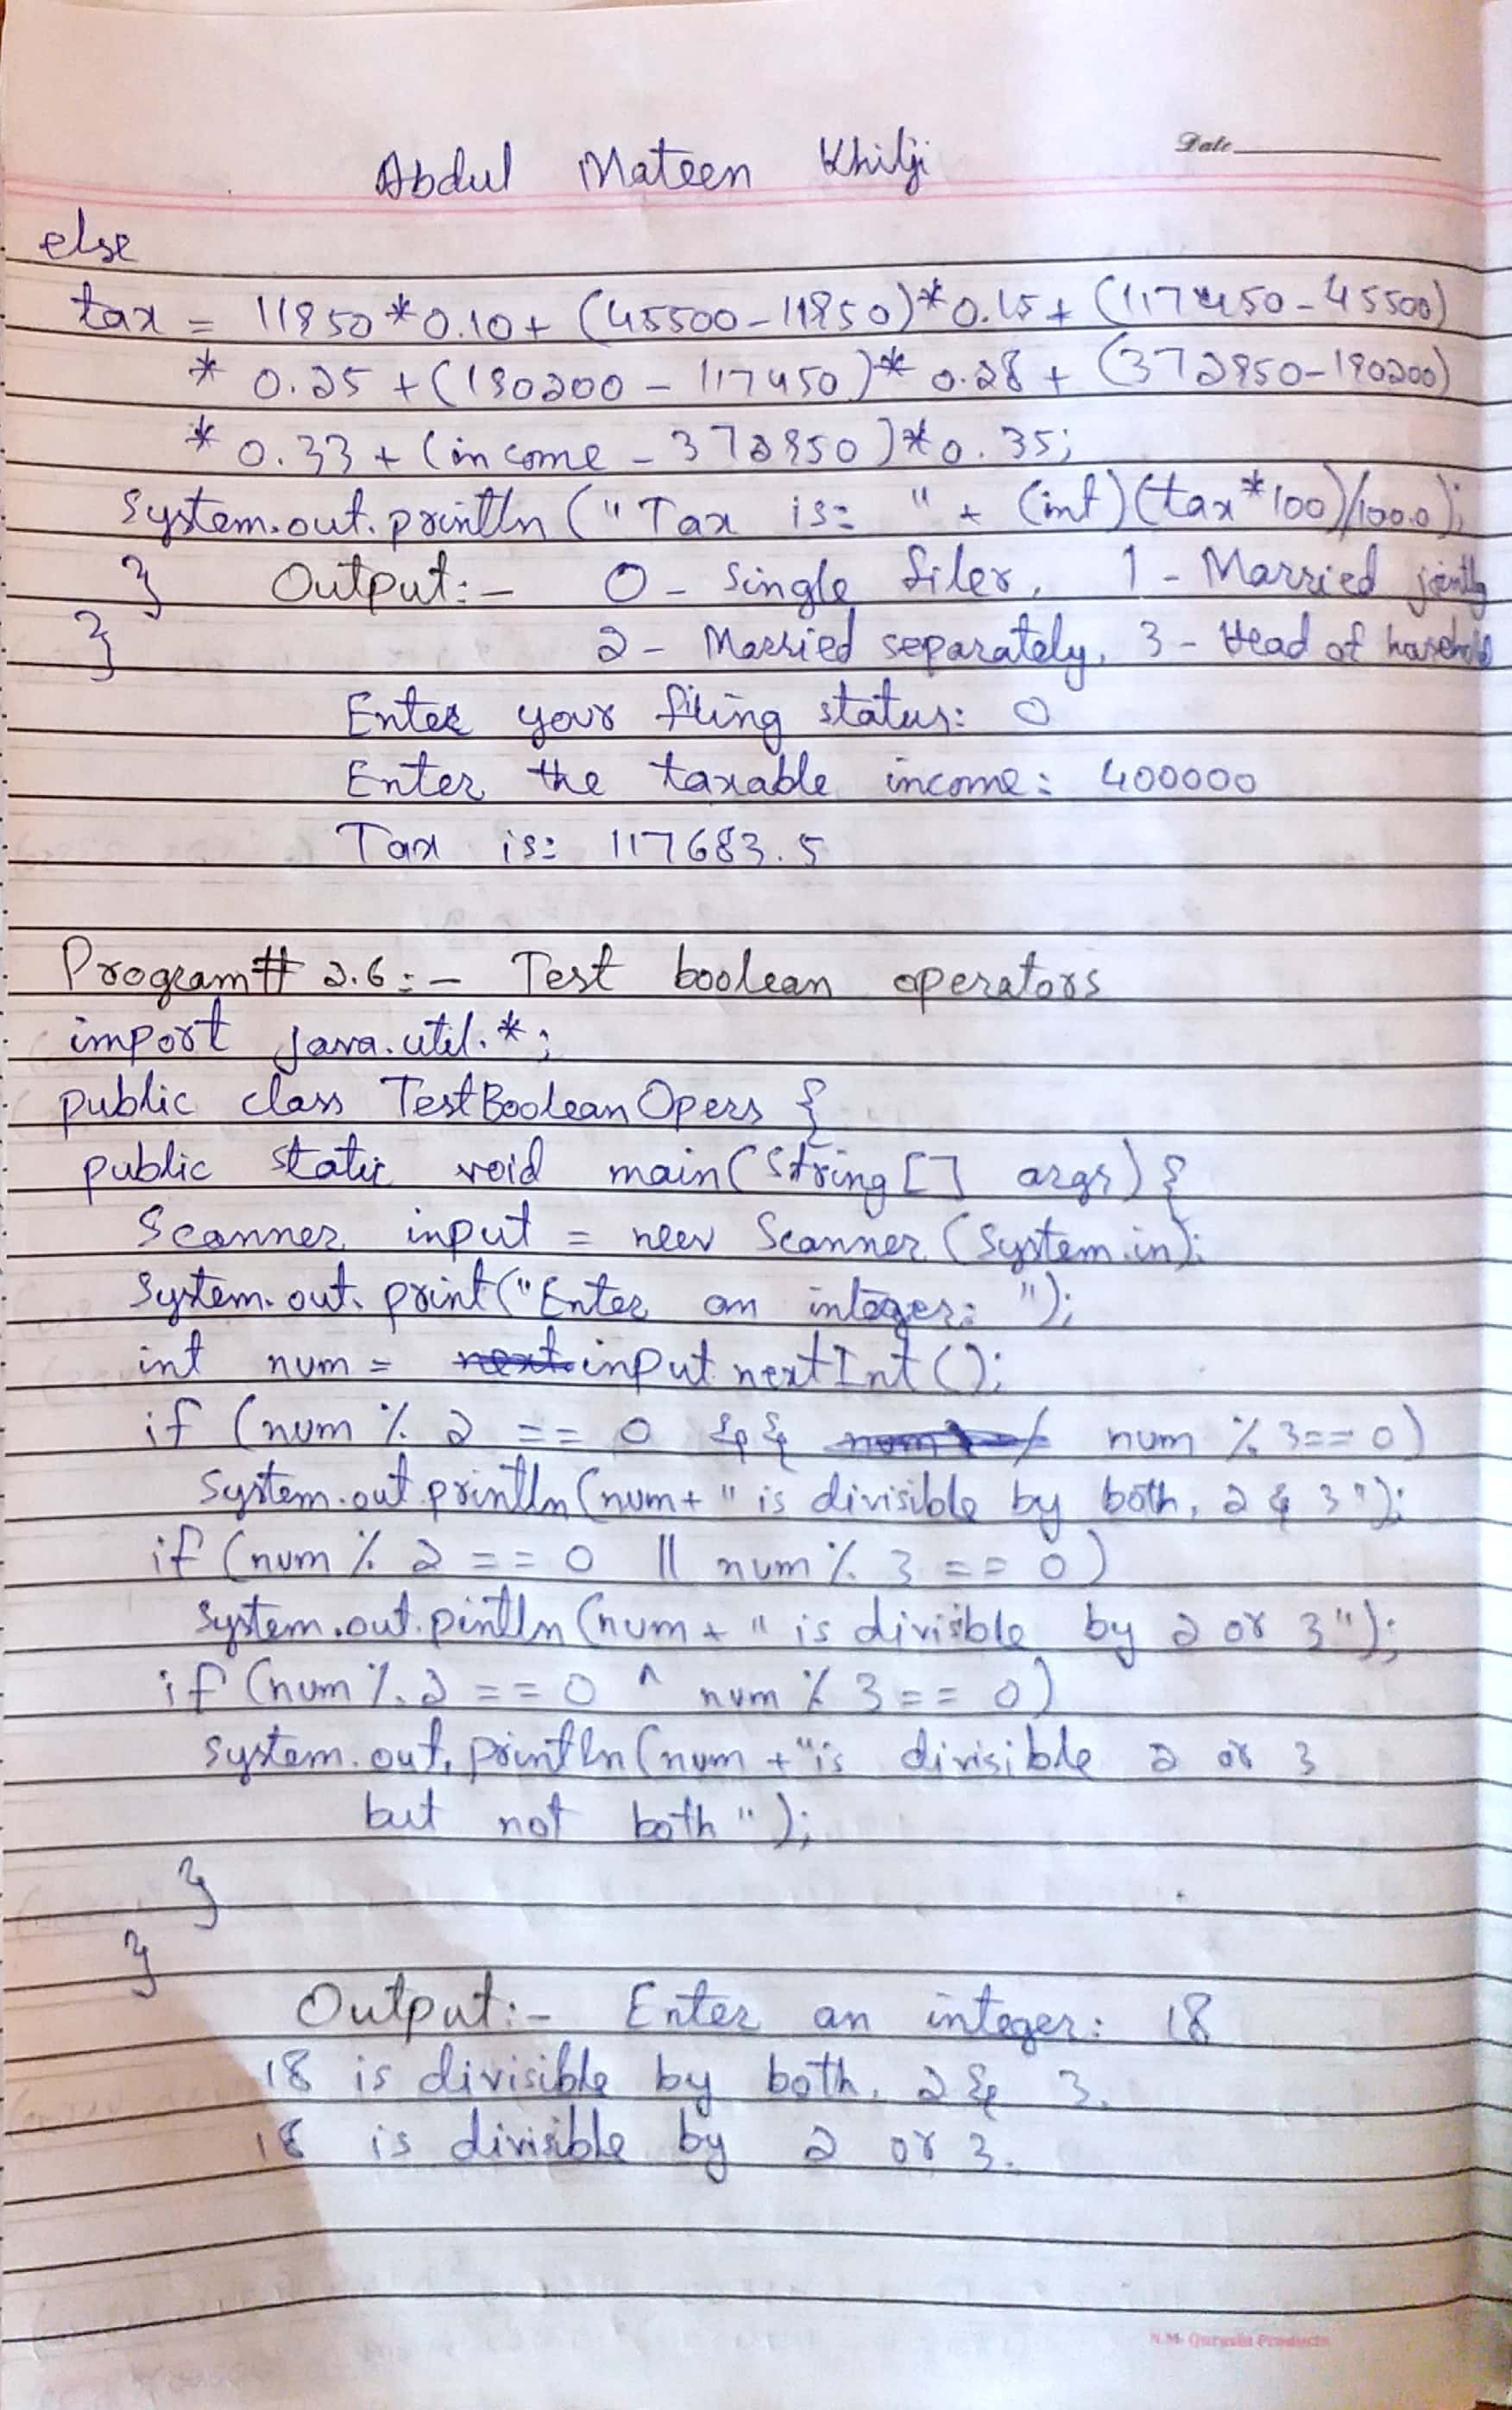 Date
Abdul Mateen Khilji
else
tax = 11950*0.10+ (45500-11950)*0.15+ (117450-45500)
* 0.25 + (190200 - 117450)* 0.28 + (372950-190200)
* 0.33 + (income - 372950)*0.35;
System.out.println ("Tax is: " + (int)(tax*100)/100.0);
} Output:- 0 - Single filer, 1 - Married jointly
} 2 - Married separately, 3 - Head of household
Enter your filing status: 0
Enter the taxable income: 400000
Tax is: 117683.5
Program# 2.6:- Test boolean operators
import java.util.*;
public class TestBooleanOpers {
public static void main(String[] args) {
Scanner input = new Scanner (System.in);
System.out.print("Enter an integer: ");
int num = input nextInt();
if (num % 2 == 0 && num % 3==0)
System.out.println(num+ " is divisible by both, 2 & 3");
if (num % 2 == 0 || num % 3 == 0)
System.out.pintln(num+ " is divisible by 2 or 3");
if (num % 2 == 0 ^ num % 3 == 0)
System.out.println(num +"is divisible 2 or 3
but not both");
}
}
Output:- Enter an integer: 18
18 is divisible by both, 2 & 3.
18 is divisible by 2 or 3.
N.M. Qureshi Products